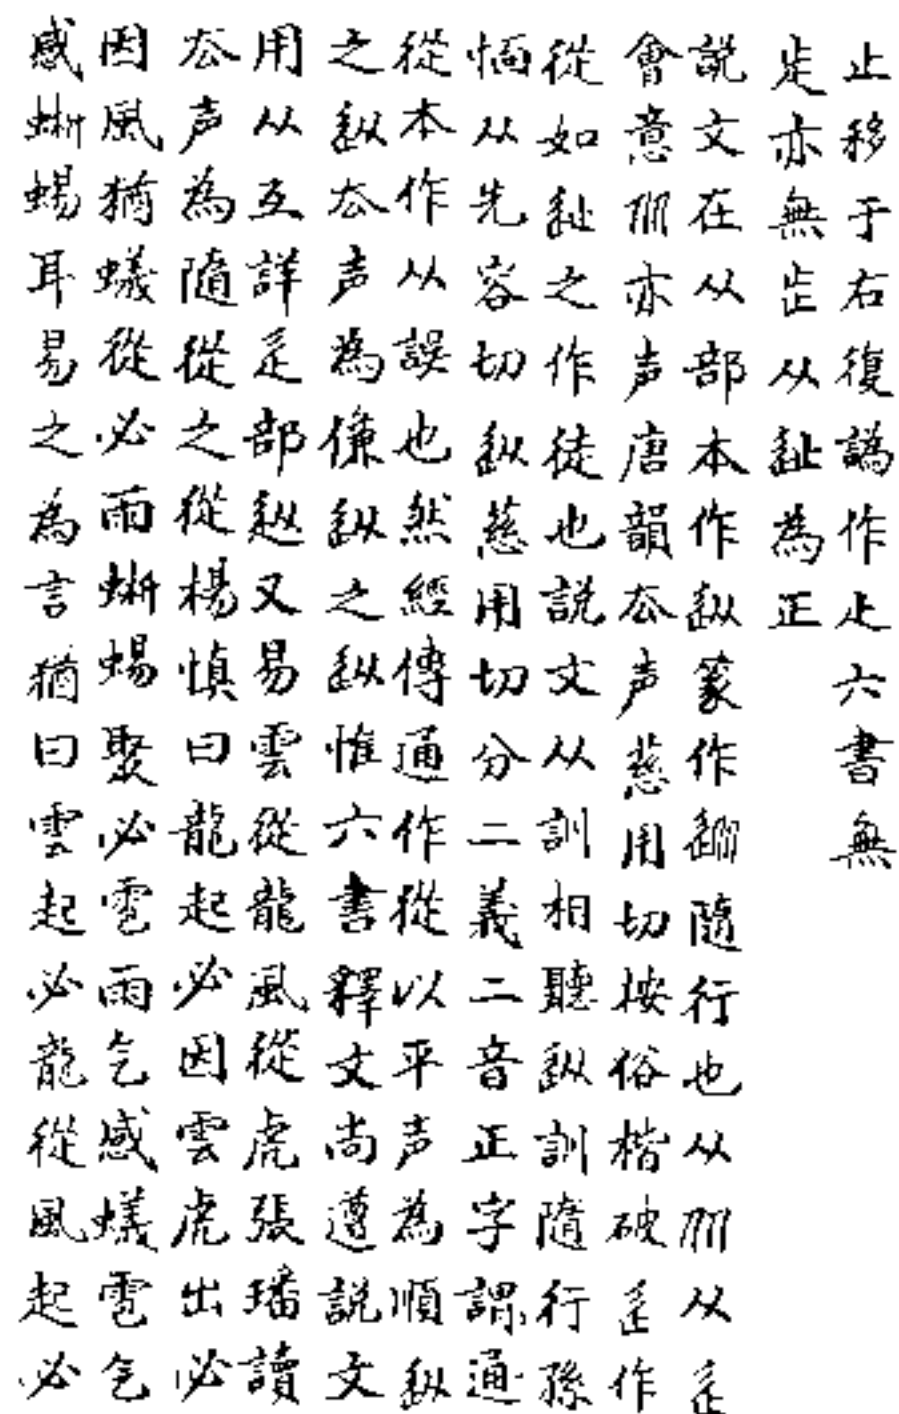 止移于右復譌作六書無
亦無从為正
説文在从部本作篆作隨行也从从辵
會意亦声唐韻去声慈用切按俗楷破辵作
從如之作徒也説文从訓相聽訓隨行孫
愐从先容切慈用切分二義二音正字謂通
從本作从誤也然經傳通作從以平声為順
之去声為傔之惟六書釋文尚遵説文
用从互詳辵部又易雲從龍風從虎張璠讀
去声為隨從之從楊慎曰龍起必因雲虎出必
因風猶蟻從必雨蜥蜴聚必雹雨气感蟻雹气
感蜥蜴耳易之為言猶曰雲起必龍從風起必